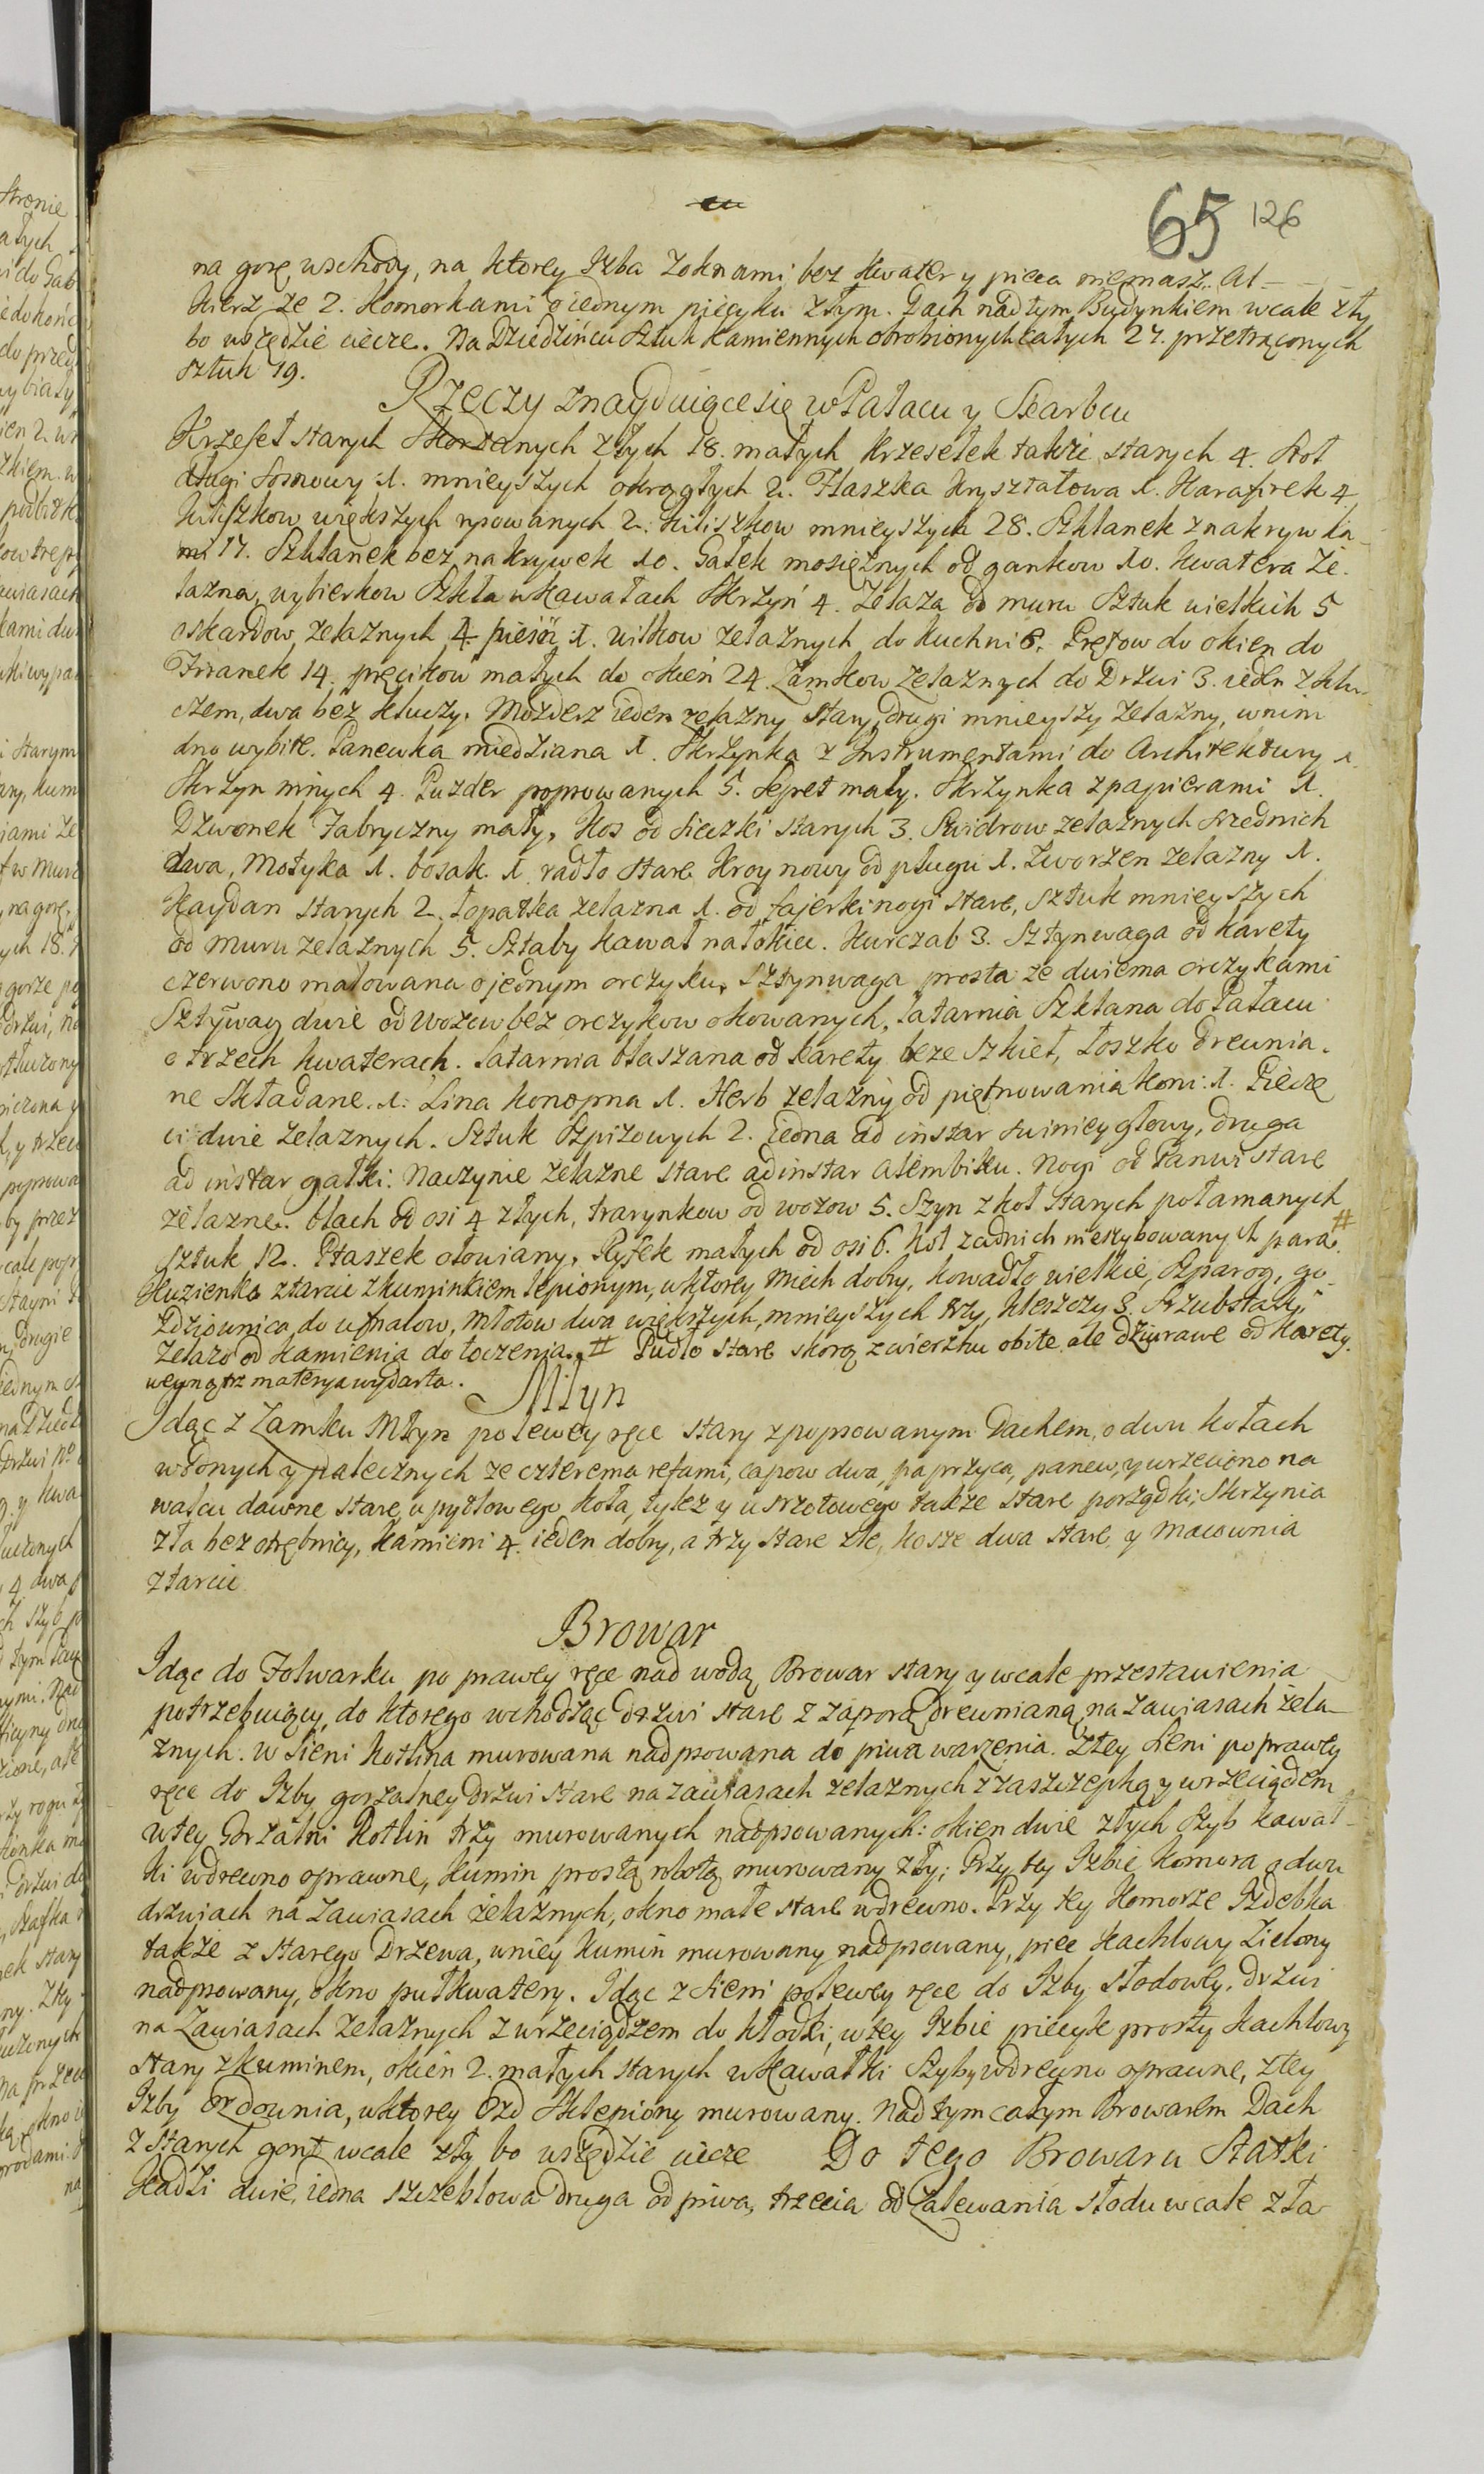 65 126
na gorę wschody, na ktorey Izba z oknami bez kwater y pieca niemasz. Al-
kierz ze 2. Komorkami o iednym piecyku złym. Dach nad tym Budynkiem wcale zły
bo wszędzie ciecze. Na Dziedzińcu Sztuk kamiennych obrobionych całych 27. przetrąconych
sztuk 19.
Rzeczy znayduiące się w Pałacu y Skarbcu
Krzeseł starych Skorzanych złych 18. małych krzesełek także starych 4. Stoł
długi sosnowy 1. mnieyszych okrągłych 2. Flaszka kryształowa 1. Karafirek 4
kiliszkow większych rysowanych 2. kiliszkow mnieyszych 28. Szklanek z nakrywka-
mi 17. Szklanek bez nakrywek 10. Gałek mosiężnych od gankow 10. kwatera że-
lazna, wybierkow Szkła w kawałach Skrzyń 4. Zelaza od muru Sztuk wielkich 5
oskardow zelaznych 4 piesni 1. wilkow zelaznych do kuchni 6. Prętow do okien do
Firanek 14. pręcikow małych do okien 24. Zamkow zelaznych do Drzwi 3. ieden z klu-
czem, dwa bez kluczy. Mozderz ieden zelazny stary, drugi mnieyszy zelazny, w nim
dno wybite. Panewka miedziana 1. Skrzynka z Instrumentami do Architektury 1.
Skrzyn innych 4. Puzder popsowanych 5. Sepet mały. Skrzynka z papierami 1.
Dzwonek Fabryczny mały, Kos od sieczki starych 3. Swidrow zelaznych srednich
dwa, Motyka 1. bosak 1. radło stare Kroy nowy od pługu 1. Zworzen zelazny 1.
Kaydan starych 2. łopatka zelazna 1. od fajerki nogi stare, sztuk mnieyszych
od muru zelaznych 5. Sztaby kawał na łokiec. Kurczab 3. Sztynwaga od karety
czerwono malowana o jednym orczyku, sztynwaga prosta ze dwiema orczykami
Sztynwag dwie od wozow bez orczykow okowanych, latarnia Szklana do Pałacu
o trzech kwaterach. latarnia blaszana od karety beze szkieł, łoszko drewnia-
ne składane 1. Lina konopna 1. Herb zelazny od piętnowania koni 1. Pieczę
ci dwie zelaznych. Sztuk Spizowych 2. Jedna ad instar swiniey głowy, druga
ad instar gałki. Naczynie zelazne stare ad instar alembiku. Nogi od Panwi stare
zelazne. blach od osi 4 złych, trarynkow od wozow 5. Szyn z koł starych połamanych
sztuk 12. Ptaszek ołowiany, Ryfek małych od osi 6. koł zadnich nieszybowanych para. #
Kuzienka z tarcic z kuminkiem lepionym, w ktorey miech dobry, kowadło wielkie, Szparog, go-
zdziownica do ufnalow, młotow dwa większych, mnieyszych trzy, kleszczy 3. Srzubstaki,
zelazo od kamienia do toczenia. # Pudło stare skorą z wierzchu obite ale dziurawe od karety.
wewnątrz materya wydarta.
Młyn
Idąc z Zamku Młyn po lewey ręce stary z popsowanym Dachem, o dwu kołach
wodnych y palecznych ze czterema refami, capow dwa, paprzyca, panew, y wrzeciono na
walcu dawne stare, u pytlowego koła, tyłez y u srzotowego także stare porządki, Skrzynia
zła bez otrębnicy, kamieni 4. ieden dobry, a trzy stare złe, kosze dwa stare y Macownia
z tarcic
Browar
Idąc do Folwarku po prawey ręce nad wodą Browar stary y wcale przestawienia
potrzebuiący, do ktorego wchodząc drzwi stare z zaporą drewnianą na zawiasach zela-
znych. w Sieni kotlina murowana nadpsowana do piwa warzenia. z tey Sieni po prawey
ręce do Izby gorzalney drzwi stare na zawiasach zelaznych z zaszczepką y wrzeciądzem
w tey Gorzalni kotlin trzy murowanych nadpsowanych: okien dwie złych szyb kawał-
ki w drewno oprawne, kumin prostą robotą murowany zły. Przy tey Izbie komora o dwu
drzwiach na zawiasach żelaznych, okno małe stare w drewno. Przy tey Komorze Izdebka
także z starego Drzewa, w niey kumin murowany nadpsowany, piec kachlowy zielony
nadpsowany, okno puł kwatery. Idąc z Sieni po lewey ręce do Izby słodowey, drzwi
na zawiasach zelaznych z wrzeciądzem do kłodki, w tey Izbie piecyk prosty kachlowy
stary z kuminem, okien 2. małych starych w kawałki Szyby w drewno oprawne, z tey
Izby Ozdownia, w ktorey Ozd sklepiony murowany. Nad tym całym Browarem Dach
z starych gont wcale zły bo wszędzie ciecze Do tego Browaru Statki
Kadzi dwie, iedna szczeblowa druga od piwa, trzecia od zalewania słodu wcale zła